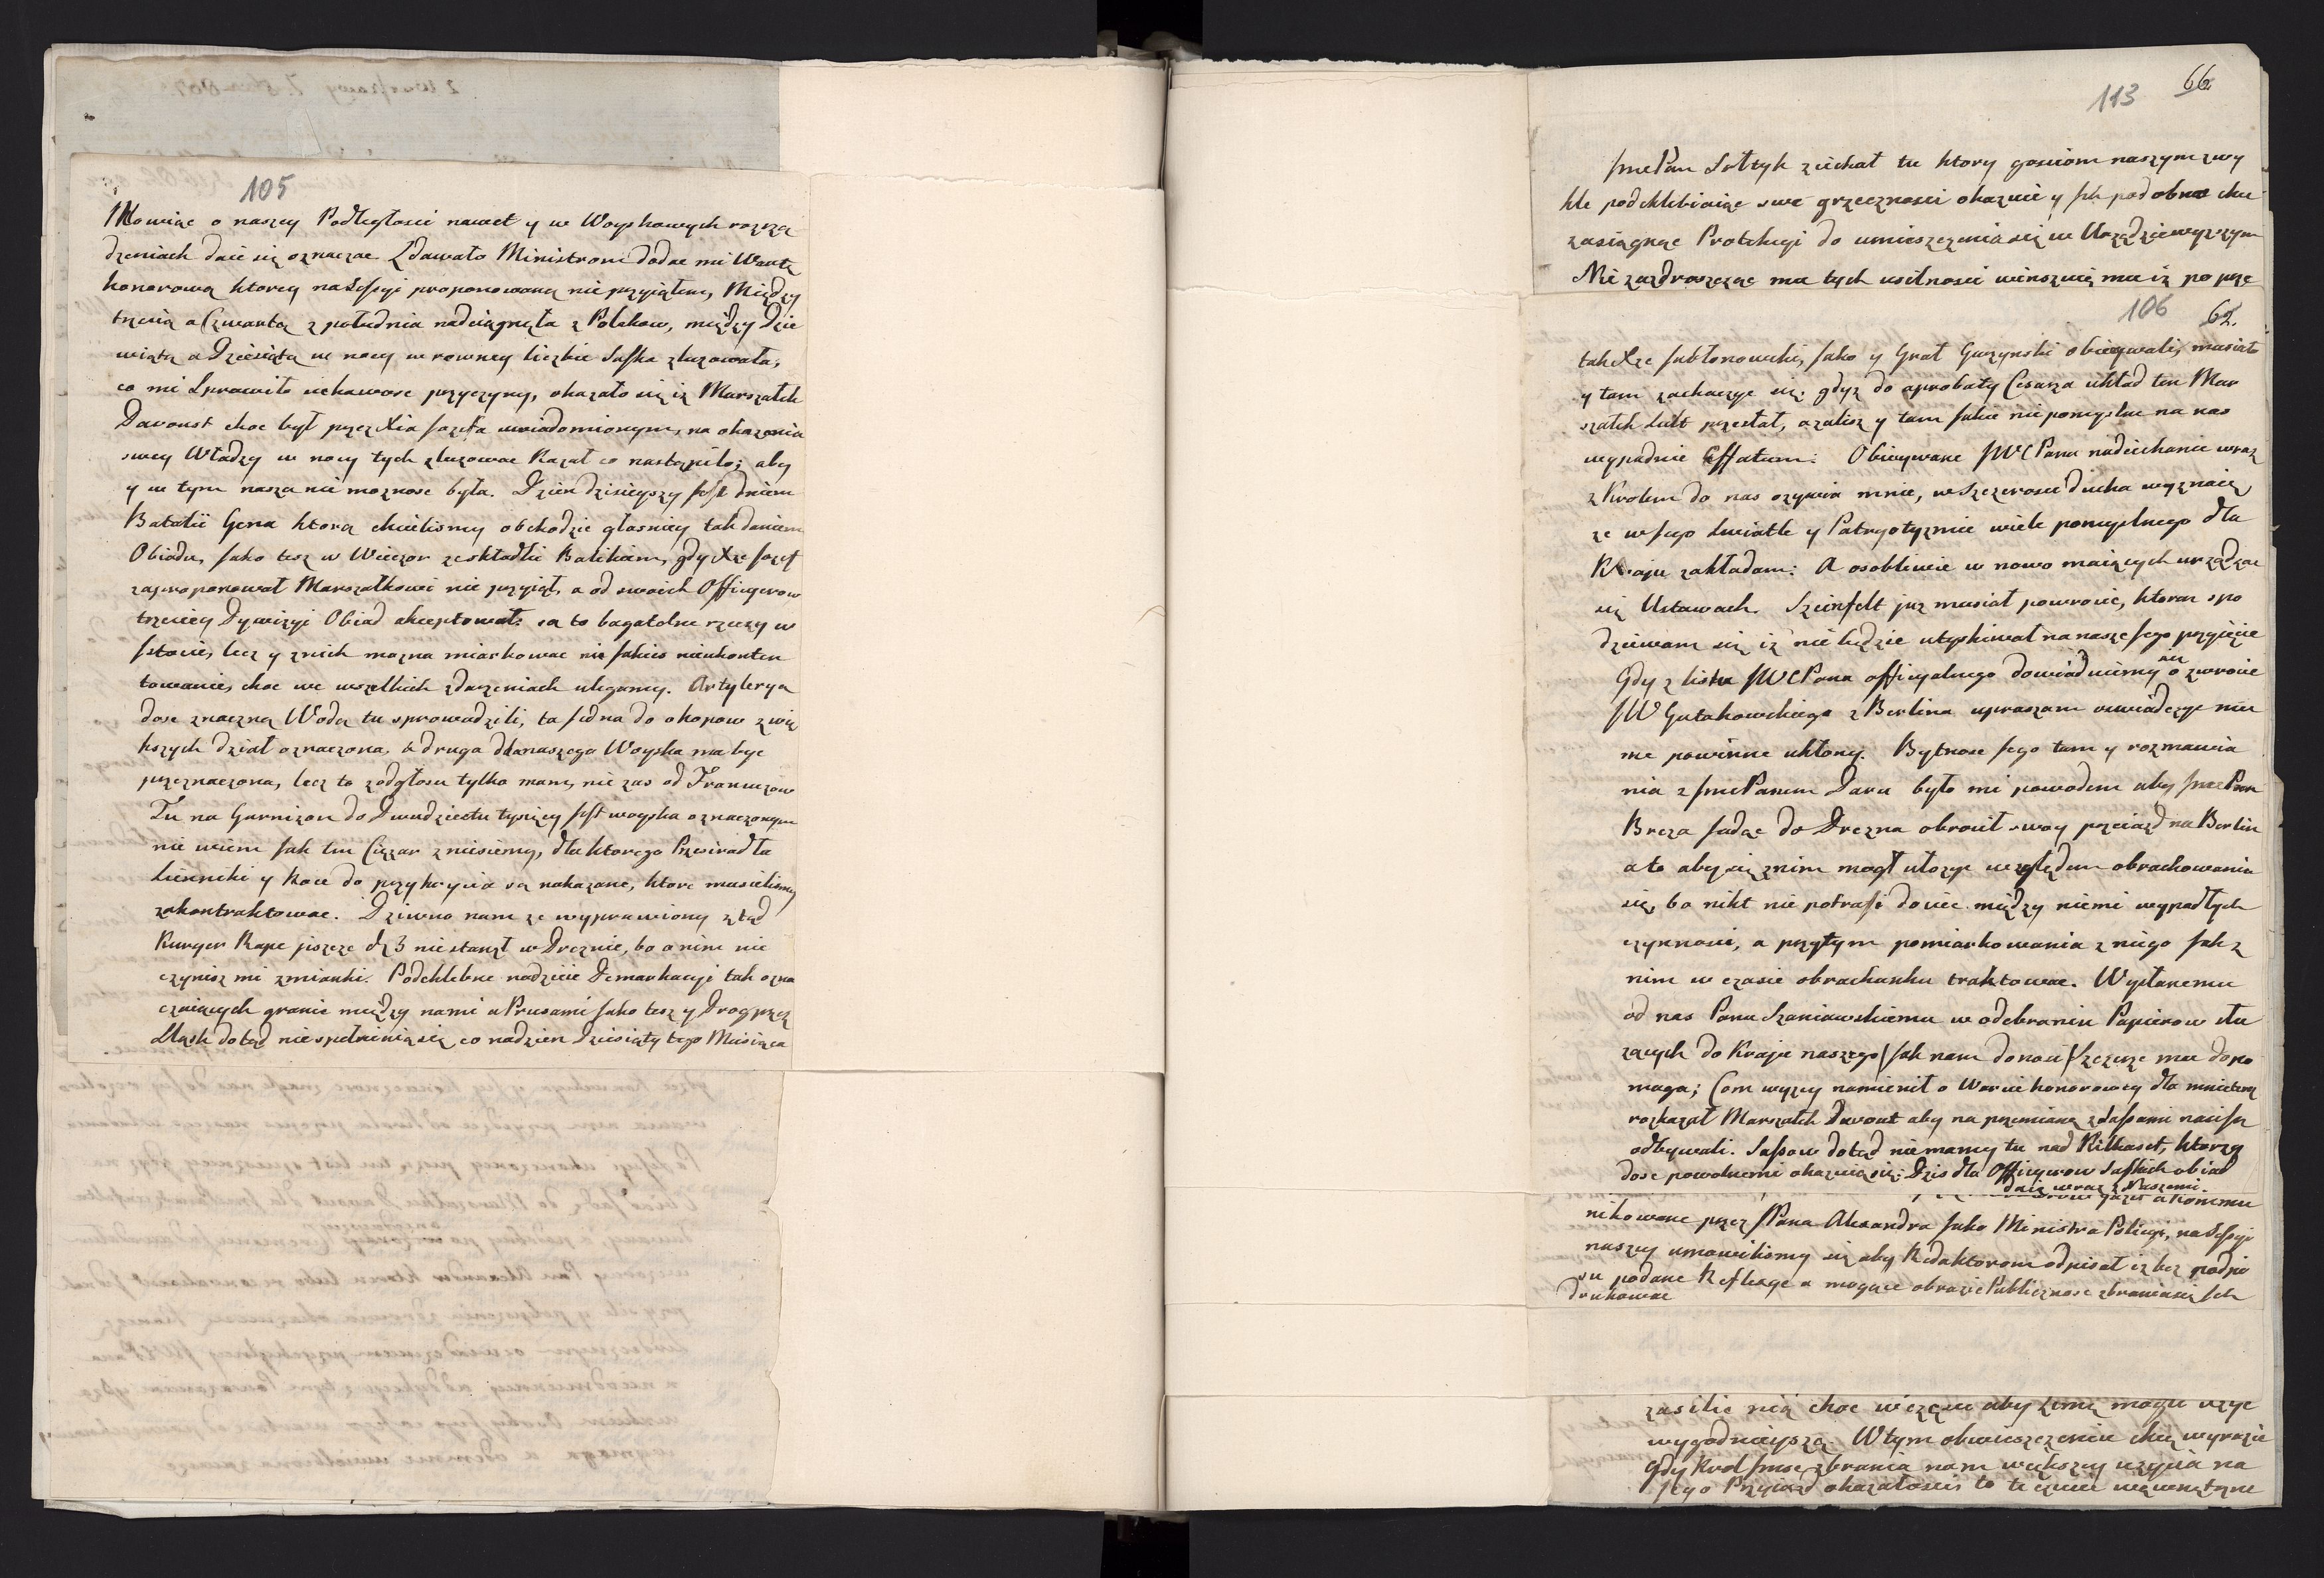 105
Mowiąc o naszey Podległosci nawet y w Woyskowych rozrzą
dzeniach daie się oznaczac. Zdawało Ministrom dodac mi Wartę
honorową ktorey na Sessyi proponowaney nie przyiąłem, Między
trzecią a Czwartą z południa nadciągnęła z Polakow, między Dzie
wiątą a Dziesiątą w nocy w rowney liczbie Saska zluzowała,
co mi Sprawiło ciekawosc przyczyny, okazało się iż Marszałek
Davoust choc był przez Xia Jozefa uwiadomionym, na okazania
swey Władzy w nocy tych zluzowac Kazał co nastąpiło; aby
y w tym nasza nie moznosc była. Dzien dzisieyszy jest dniem
Batalii Gena ktorą chcielismy obchodzic głosniey tak daniem
Obiadu, jako tesz w Wieczor ze składki Balikiem, gdy Xże Jozef
zaproponował Marszałkowi nie przyiął, a od swoich Officyerow
trzeciey Dywizyi Obiad akceptował. są to bagatelne rzeczy w
Jstocie, lecz y znich mozna miarkowac nie jakies nieukonten
towanie, choc we wszelkich zdarzeniach ulegamy. Artylerya
dosc znaczną Wodą tu sprowadzili, ta jedna do okopow z wię
kszych dział oznaczona, a druga dla naszego Woyska ma byc
przeznaczona, lecz to z odgłosu tylko mam, nie zas od Francuzow
Tu na Garnizon do Dwudziestu tysięcy jest woyska oznaczonym
nie wiem jak ten Ciężar zniesiemy, dla ktorego Przescieradła
Sienniki y Koce do przykrycia są nakazane, ktore musielismy
zakontraktowac. Dziwno nam ze wyprawiony ztąd
Kuryer Rape jeszcze d 3 nie stanął w Dreznie, bo o nim nie
czynisz mi zmianki. Podchlebne nadzieie Demarkacyi tak ozna
czaiących granic między nami a Prusami jako tesz y Drogi przez
Sląsk dotąd nie spełniaią się, co nadzien Dziesiąty tego Miesiąca
113 66
JmePan Sołtyk ziechał tu ktory gosciom naszym zwy
kle podchlebiaiąc swe grzecznosci okazuie y ich podobno chce
zasiągnąc Protekcyi do umieszczenia się w Urzędzie wyższym
Nie zazdroszcząc mu tych usilnosci winszuię mu iż po prze
106 62.
tak Xże Jabłonowski, jako y Grał Guzynski obiecywali, musiało
y tam zachaczyc się; gdyz do aprobaty Cesarza układ ten Mar
szałek Sult przesłał, azalisz y tam jakie niepomyslne na nas
wypadnie Effatum. Obiecywane JWCPana nadiechanie wraz
z Krolem do nas ozywia mnie, w Szczerosci ducha wyznaię
ze w Jego Swietle y Patryotyzmie wiele pomyslnego dla
Kraju zakładam: A osobliwie w nowo maiących urządzac
się Ustawach. Szeinfelt juz musiał powrocic, ktoren spo
dziewam się iż nie będzie utyskiwał na nasze jego przyięcie
Gdy z listu JWCPana officyalnego dowiaduiemy się o zwrocie
JW Gutakowskiego z Berlina upraszam oswiadczyc mu
me powinne ukłony. Bytnosc jego tam y rozmawia
nia z JmePanem Daru było mi powodem aby JmePan
Breza jadąc do Drezna obrocił swoy przeiazd na Berlin
a to aby się znim mogł ułozyc względem obrachowania
się, bo nikt nie potrafi dociec między niemi wypadłych
czynnosci, a przytym pomiarkowania z niego jak z
nim w czasie obrachunku traktowac. Wysłanemu
od nas Panu Szaniawskiemu w odebraniu Papierow słu
zących do Kraju naszego /jak nam donosi/ Szczerze mu dopo
maga; Com wyzey namienił o Warcie honorowey dla mnie teraz
rozkazał Marszałek Davout aby na przemianę z Sassami nasi ją
odbywali. Sasow dotąd nie mamy tu nad Kilkaset, ktorzy
dosc powolnemi okazuią się. Dzis dla Officyerow Saskich obiad
daię wraz z Naszemi.
nikowane przez JPana Alexandra jako Ministra Policyi, na Sessyi
naszey umowilismy się aby Redaktorom odpisał iż bez podpi
su podane Reflexye a mogące obrazic Publicznosc zbrania się ich
drukowac
zasilic nią choc w częsci aby zimę mogli uzyc
wygodnieyszą. W tym obwieszczeniu chcę wyrazic
gdy Krol Jmsc zbrania nam większey uzycia na
Jego Przyiazd okazałosci, to te czucie wewnętrzne